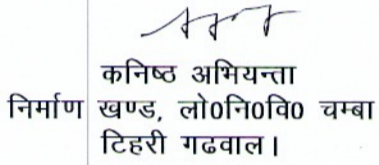 कनिष्ठ अभियन्ता
निर्माण खण्ड, लो0नि0वि0 चम्बा
टिहरी गढवाल।